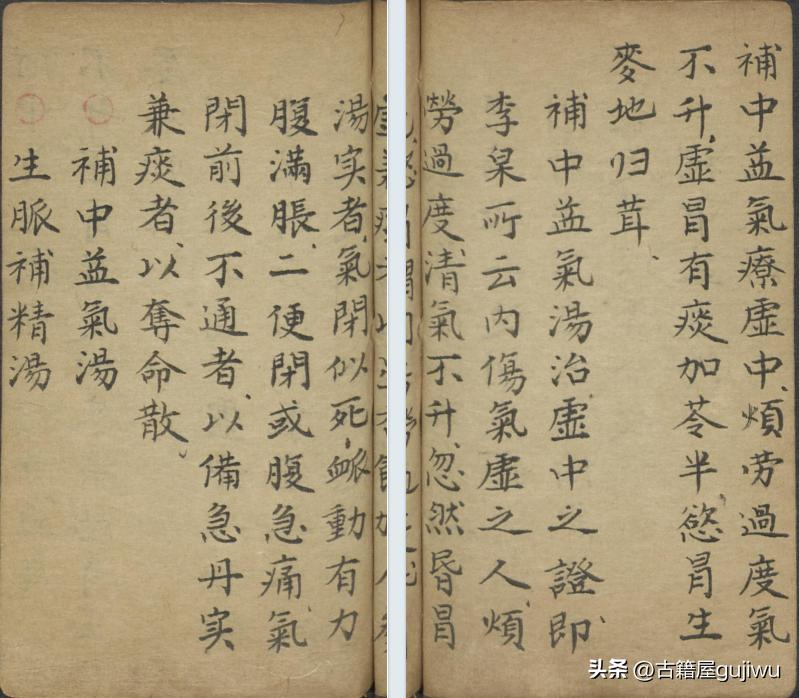 補中益氣療虛中煩劳過度氣
不升虛冒有痰加苓半慾冒生
麥地归茸
補中益氣湯治虛中之證即
李杲所云内傷氣虛之人煩
勞過度清氣不升忽然昏冒
湯实者氣閉似死衇動有力
腹滿脹二便閉或腹急痛氣
閉前後不通者以備急丹实
兼痰者以奪命散
補中益氣湯
生脈補精湯
头条 @古籍屋gujiwu